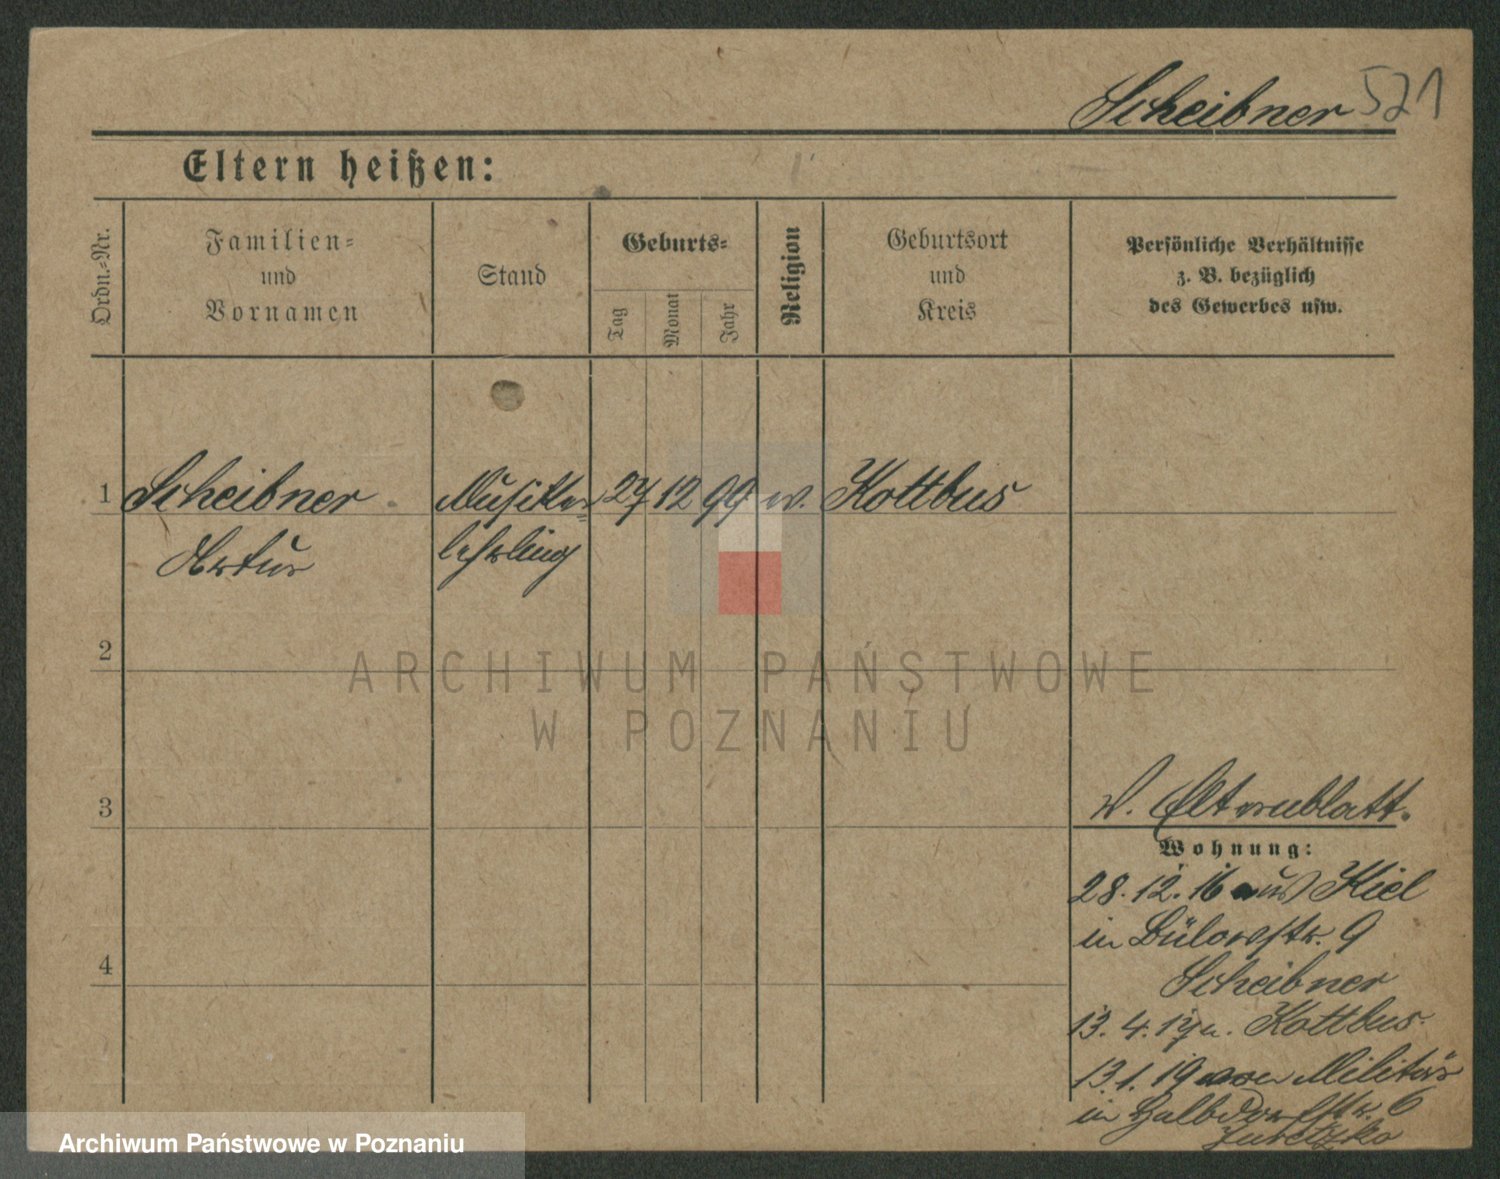 Scheibner 521
Eltern heißen:
Ordn.-Nr.
Familien-
und
Vornamen
Stand
Geburts-
Tag
Monat
Jahr
Religion
Geburtsort
und
Kreis
Persönliche Verhältnisse
z. B. bezüglich
des Gewerbes usw.
1 Scheibner Musiker= 27 12 99 w. Kottbus
Artur lehrling
2
ARCHIWUM PAŃSTWOWE
W POZNANIU
3
Elternblatt.
Wohnung:
28.12.16 aus Kiel
in Bülowstr. 9
4
Scheibner
13.4.17 n. Kottbus
13.1.19 vom Militär
in Halbdorfstr. 6
Archiwum Państwowe w Poznaniu